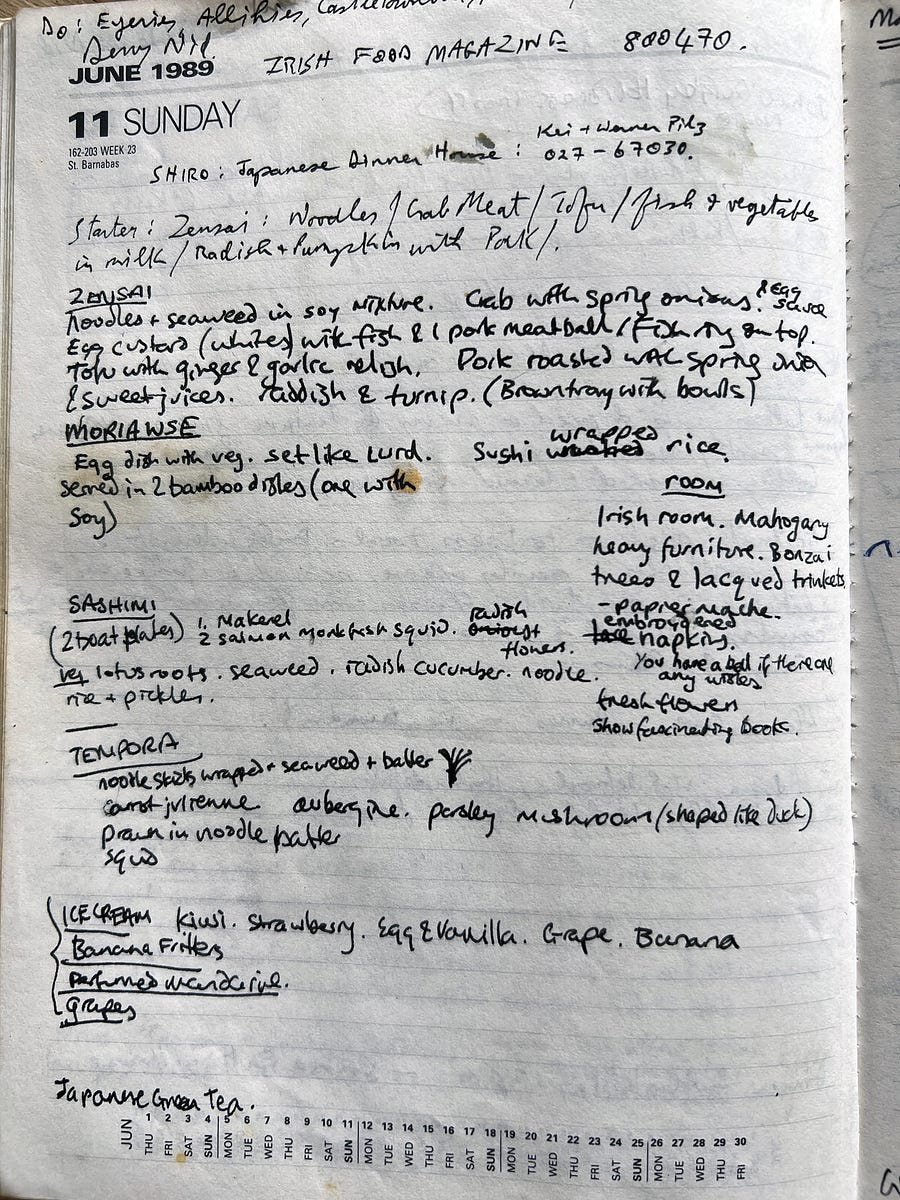 Do: Eyeries, Allihies, Castletown
Derry Nid
JUNE 1989 IRISH FOOD MAGAZINE 800470.
11 SUNDAY
162-203 WEEK 23
St. Barnabas
Kei + Werner Pilz
SHIRO: Japanese Dinner House: 027-67030.
Starter: Zensai: Noodles / Crab Meat / Tofu / fish & vegetables
in milk / Radish + Pumpkin with Pork /.
ZENSAI
Noodles + seaweed in soy mixture. Crab with spring onions. & egg sauce
Egg custard (whites) with fish & 1 pork meatball / Fish ring on top.
Tofu with ginger & garlic relish. Pork roasted with spring onion
& sweet juices. Raddish & turnip. (Brown tray with bowls)
MORIAWSE
Egg dish with veg. set like curd. Sushi wrapped rice.
served in 2 bamboo dishes (one with
soy)
ROOM
Irish room. Mahogany
heavy furniture. Bonzai
trees & lacqued trinkets
- papier mache.
embroydered
napkins.
You have a bell if there are
any wishes
fresh flowers
show fascinating books.
SASHIMI
(2 boat plates) 1. Makerel
2 salmon monkfish squid. radish
flowers.
veg lotus roots. seaweed. radish cucumber. noodle.
rice + pickles.
TEMPORA
noodle sticks wrapped + seaweed + batter
carrot julienne aubergine. parsley mushroom (shaped like duck)
prawn in noodle batter
squid
ICE CREAM Kiwi. Strawberry. Egg & Vanilla. Grape. Banana
Banana Fritters
Perfumed mandarine.
grapes
Japanese Green Tea.
JUN 1 2 3 4 5 6 7 8 9 10 11 12 13 14 15 16 17 18 19 20 21 22 23 24 25 26 27 28 29 30
THU FRI SAT SUN MON TUE WED THU FRI SAT SUN MON TUE WED THU FRI SAT SUN MON TUE WED THU FRI SAT SUN MON TUE WED THU FRI